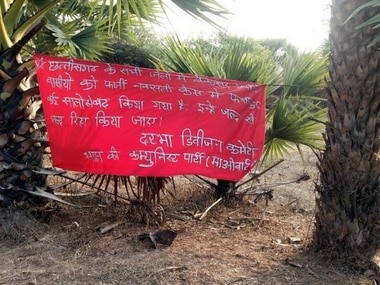 छत्तीसगढ़ के सभी जेलों में
को फर्जी नक्सली केस में
किया गया है। इन्हें जल्द से
रिहा किया जाए।
दरभा डिवीजन कमेटी
भारत की कम्युनिस्ट पार्टी (माओवादी)